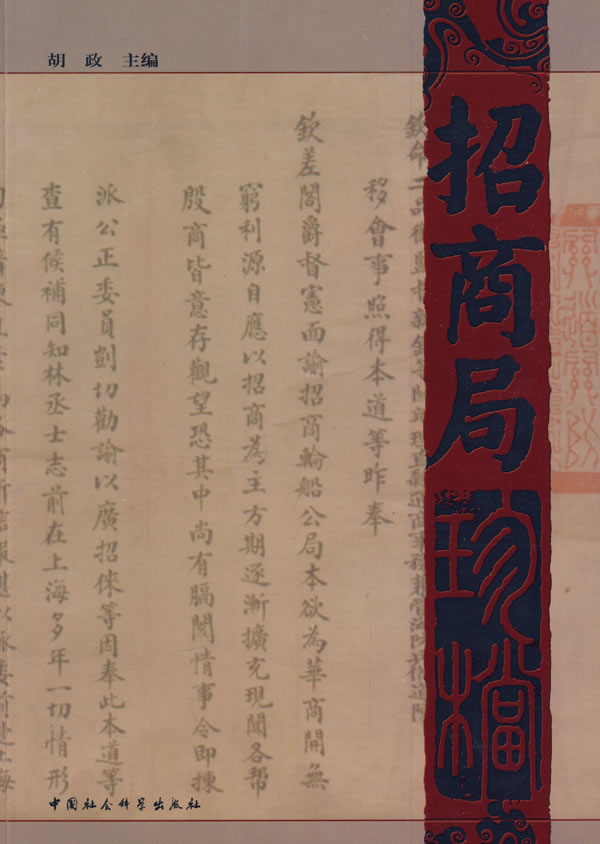 胡政 主编
招商局
珍檔
移會事照得本道等昨奉
欽差閣爵督憲面諭招商輪船公局本欲為華商開無
窮利源自應以招商為主方期逐漸擴充現聞各幫
殷商皆意存觀望恐其中尚有膈閡情事令即揀
派公正委員剴切勸諭以廣招徠等因奉此本道等
查有候補同知林丞士志前在上海多年一切情形
中国社会科学出版社